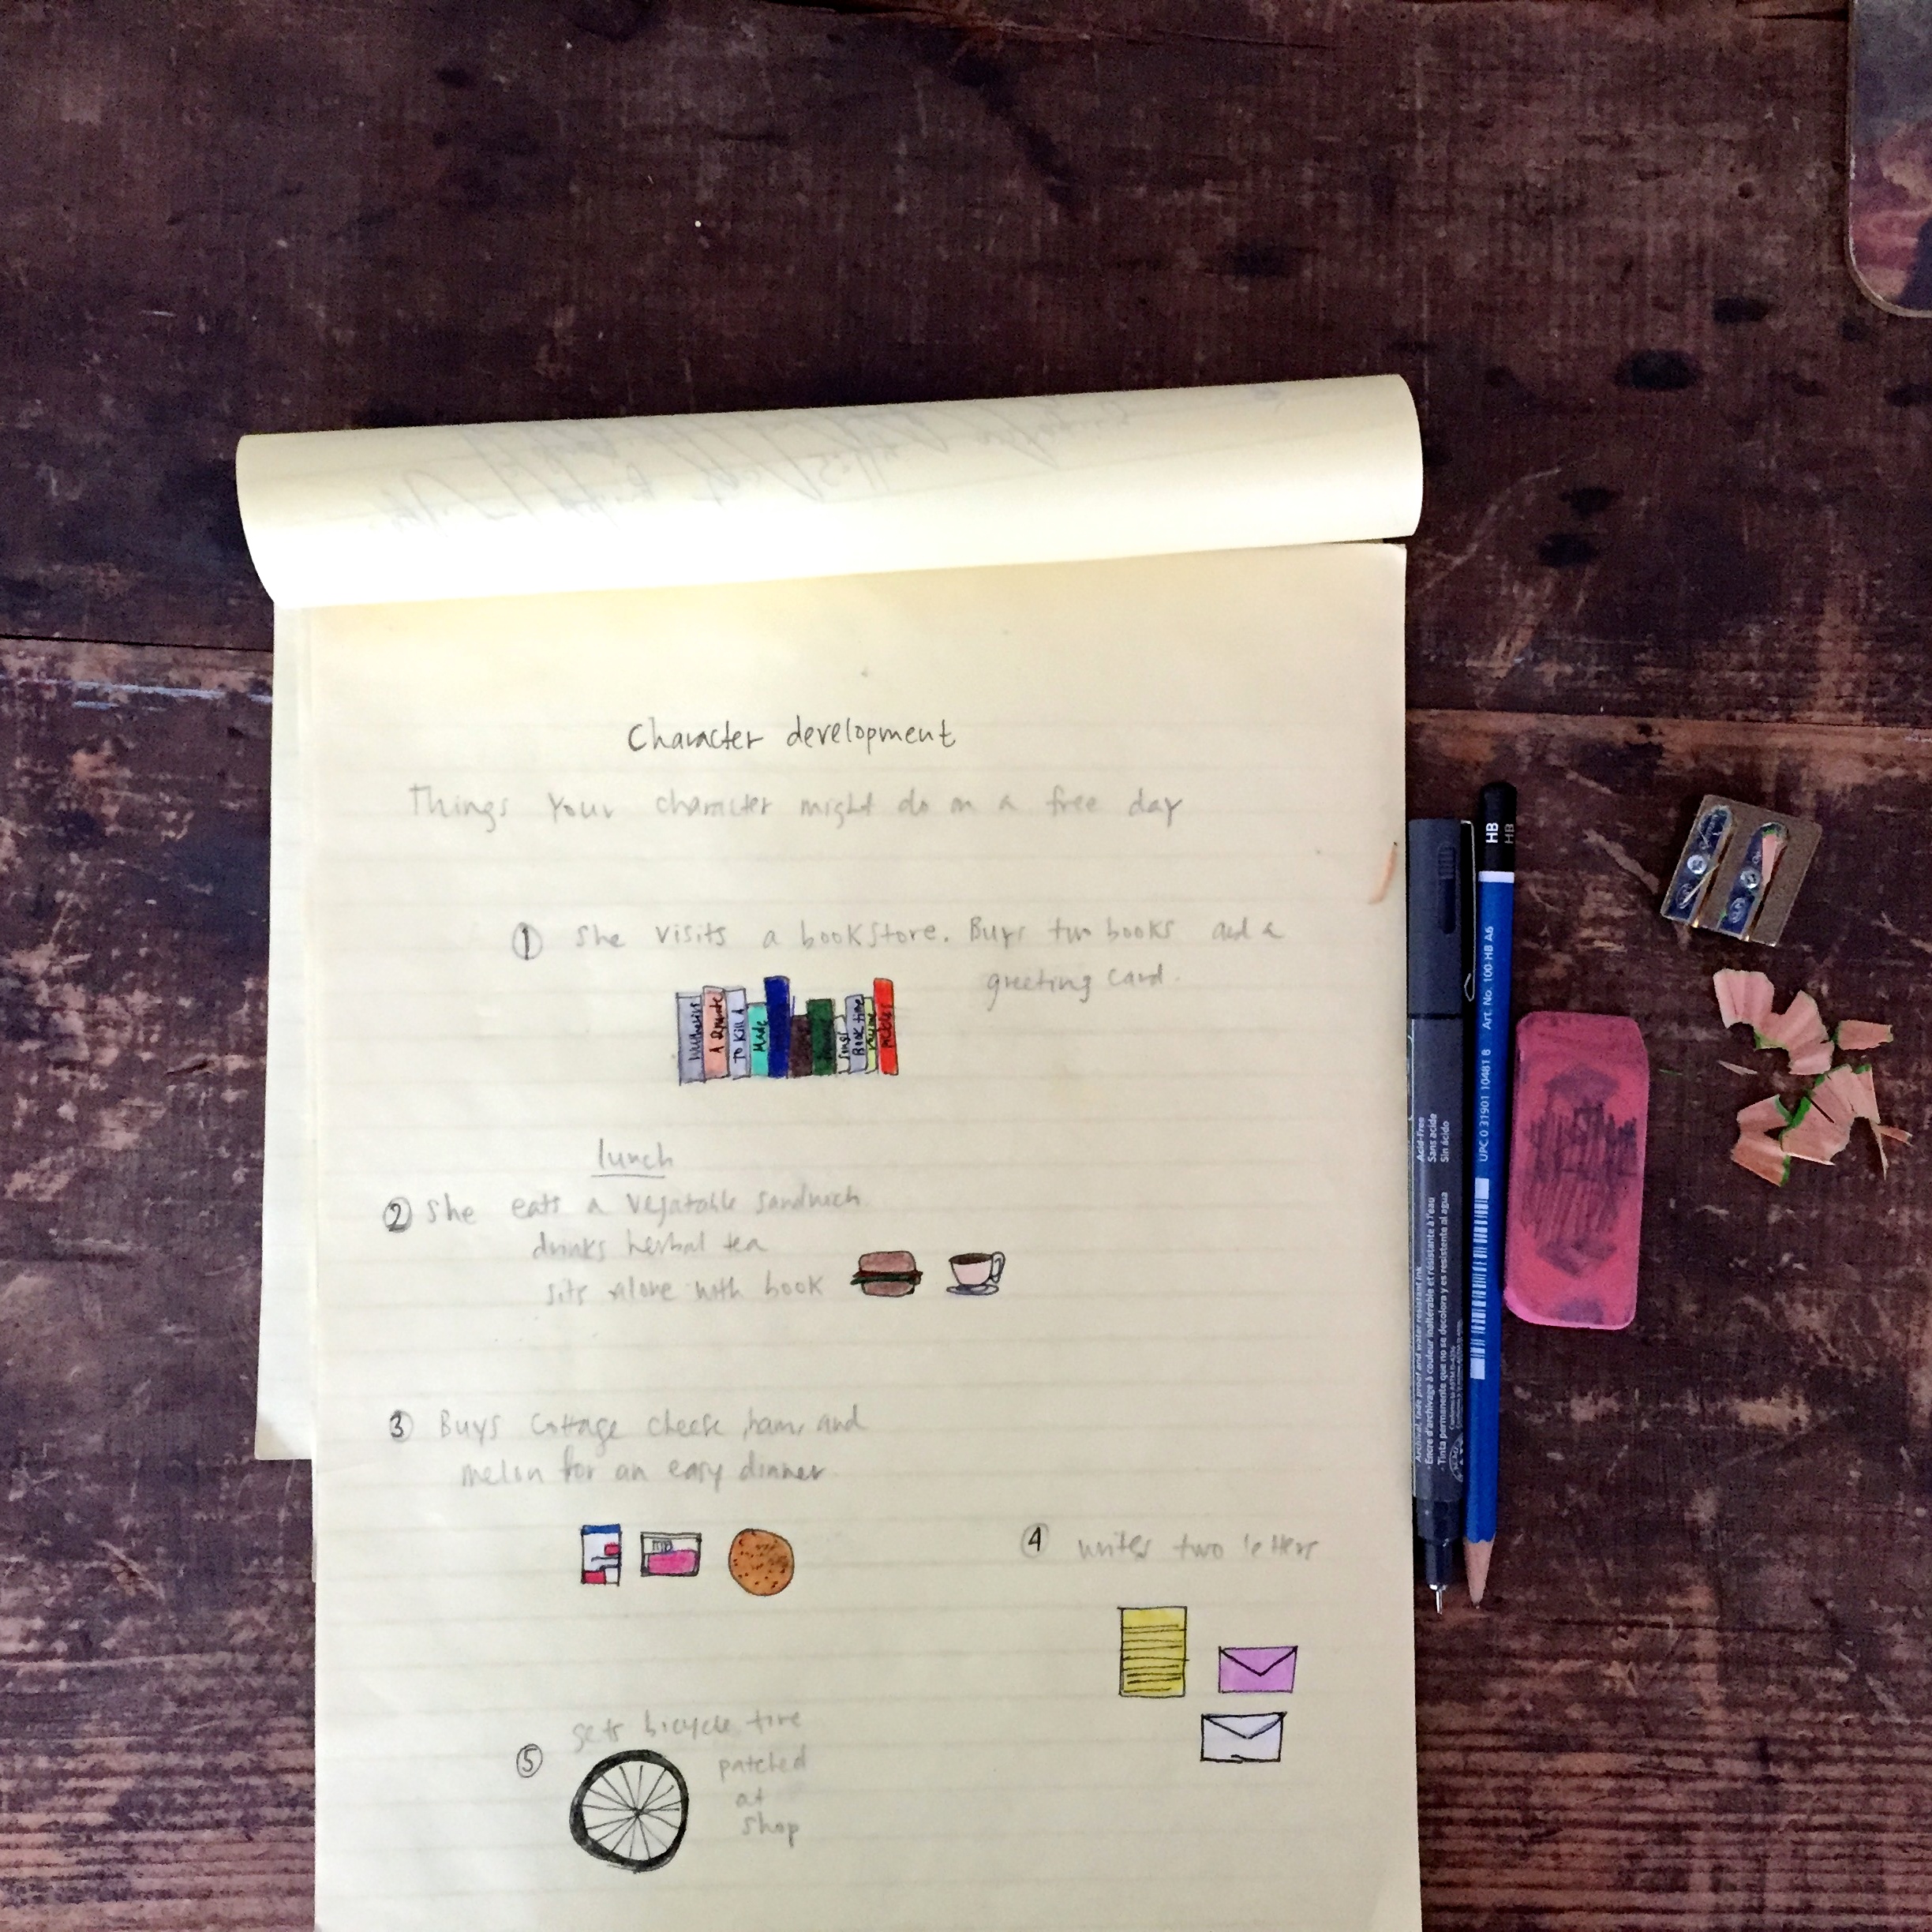 Character development
Things Your character might do on a free day
① She visits a bookstore. Buys two books and a
greeting card.
Wuthering
A Separate
TO Kill A
Made
Songs
Book time
lunch
② She eats a vegatable sandwich
drinks herbal tea
sits alone with book
③ Buys cottage cheese, ham, and
melon for an easy dinner
④ writes two letters
⑤ gets bicycle tire
patched
at
shop
HB
HB
Art. No. 100-HB A6
UPC 0 31901 10481 8
Acid-Free
Sans acide
Sin ácido
- Archival, fade proof and water resistant ink
- Encre d'archivage à couleur inaltérable et résistante à l'eau
- Tinta permanente que no se decolora y es resistente al agua